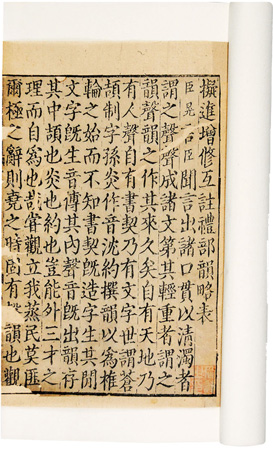 擬進增修互註禮部韻略表
臣晃言臣聞言出諸口貫以清濁者
謂之聲聲成諸文第其輕重者謂之
韻聲韻之作其來久矣自有天地乃
有人聲自有書契乃有文字世謂蒼
頡制字孫炎作音沈約撰韻以爲椎
輪之始而不知書契旣造字生其間
文字旣生音傳其內聲音旣出韻存
其中頡也炎也約也豈能外三才之
理而自爲也嘗觀立我蒸民莫匪
爾極之辭則堯之時固有聲韻也觀